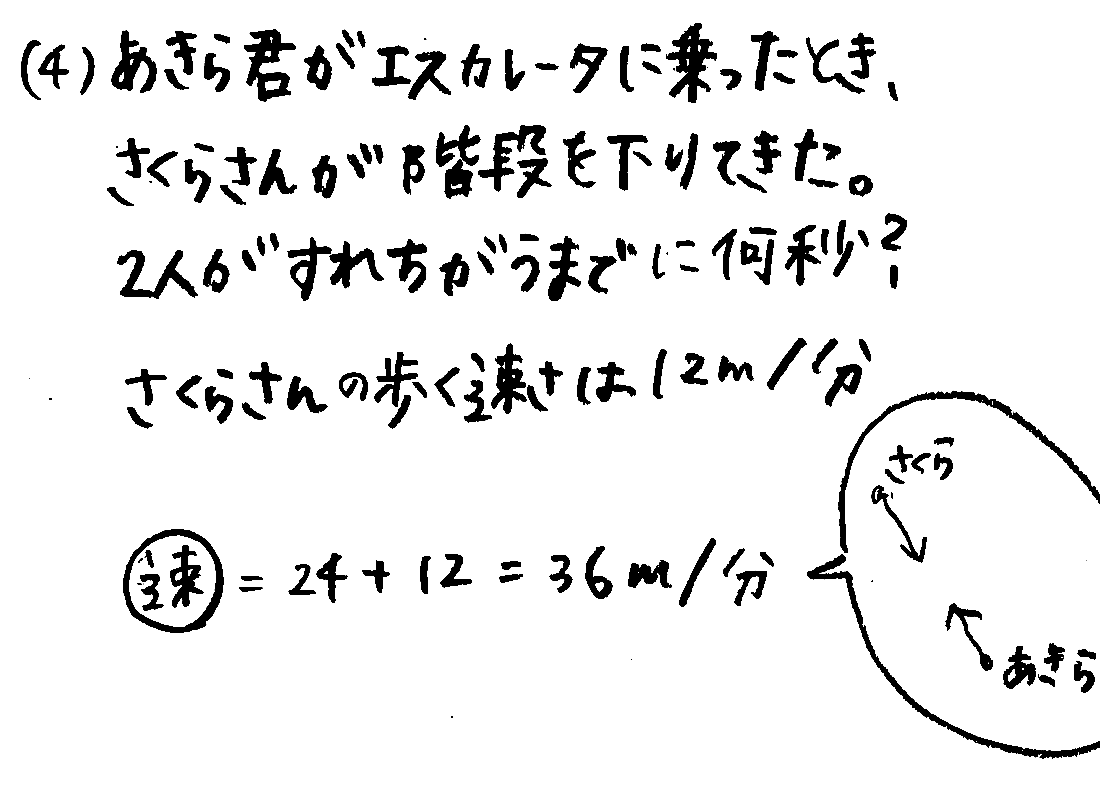 (4) あきら君がエスカレータに乗ったとき、
さくらさんが階段を下りてきた。
2人がすれちがうまでに何秒?
さくらさんの歩く速さは12m/分
速 = 24 + 12 = 36m/分
さくら
あきら